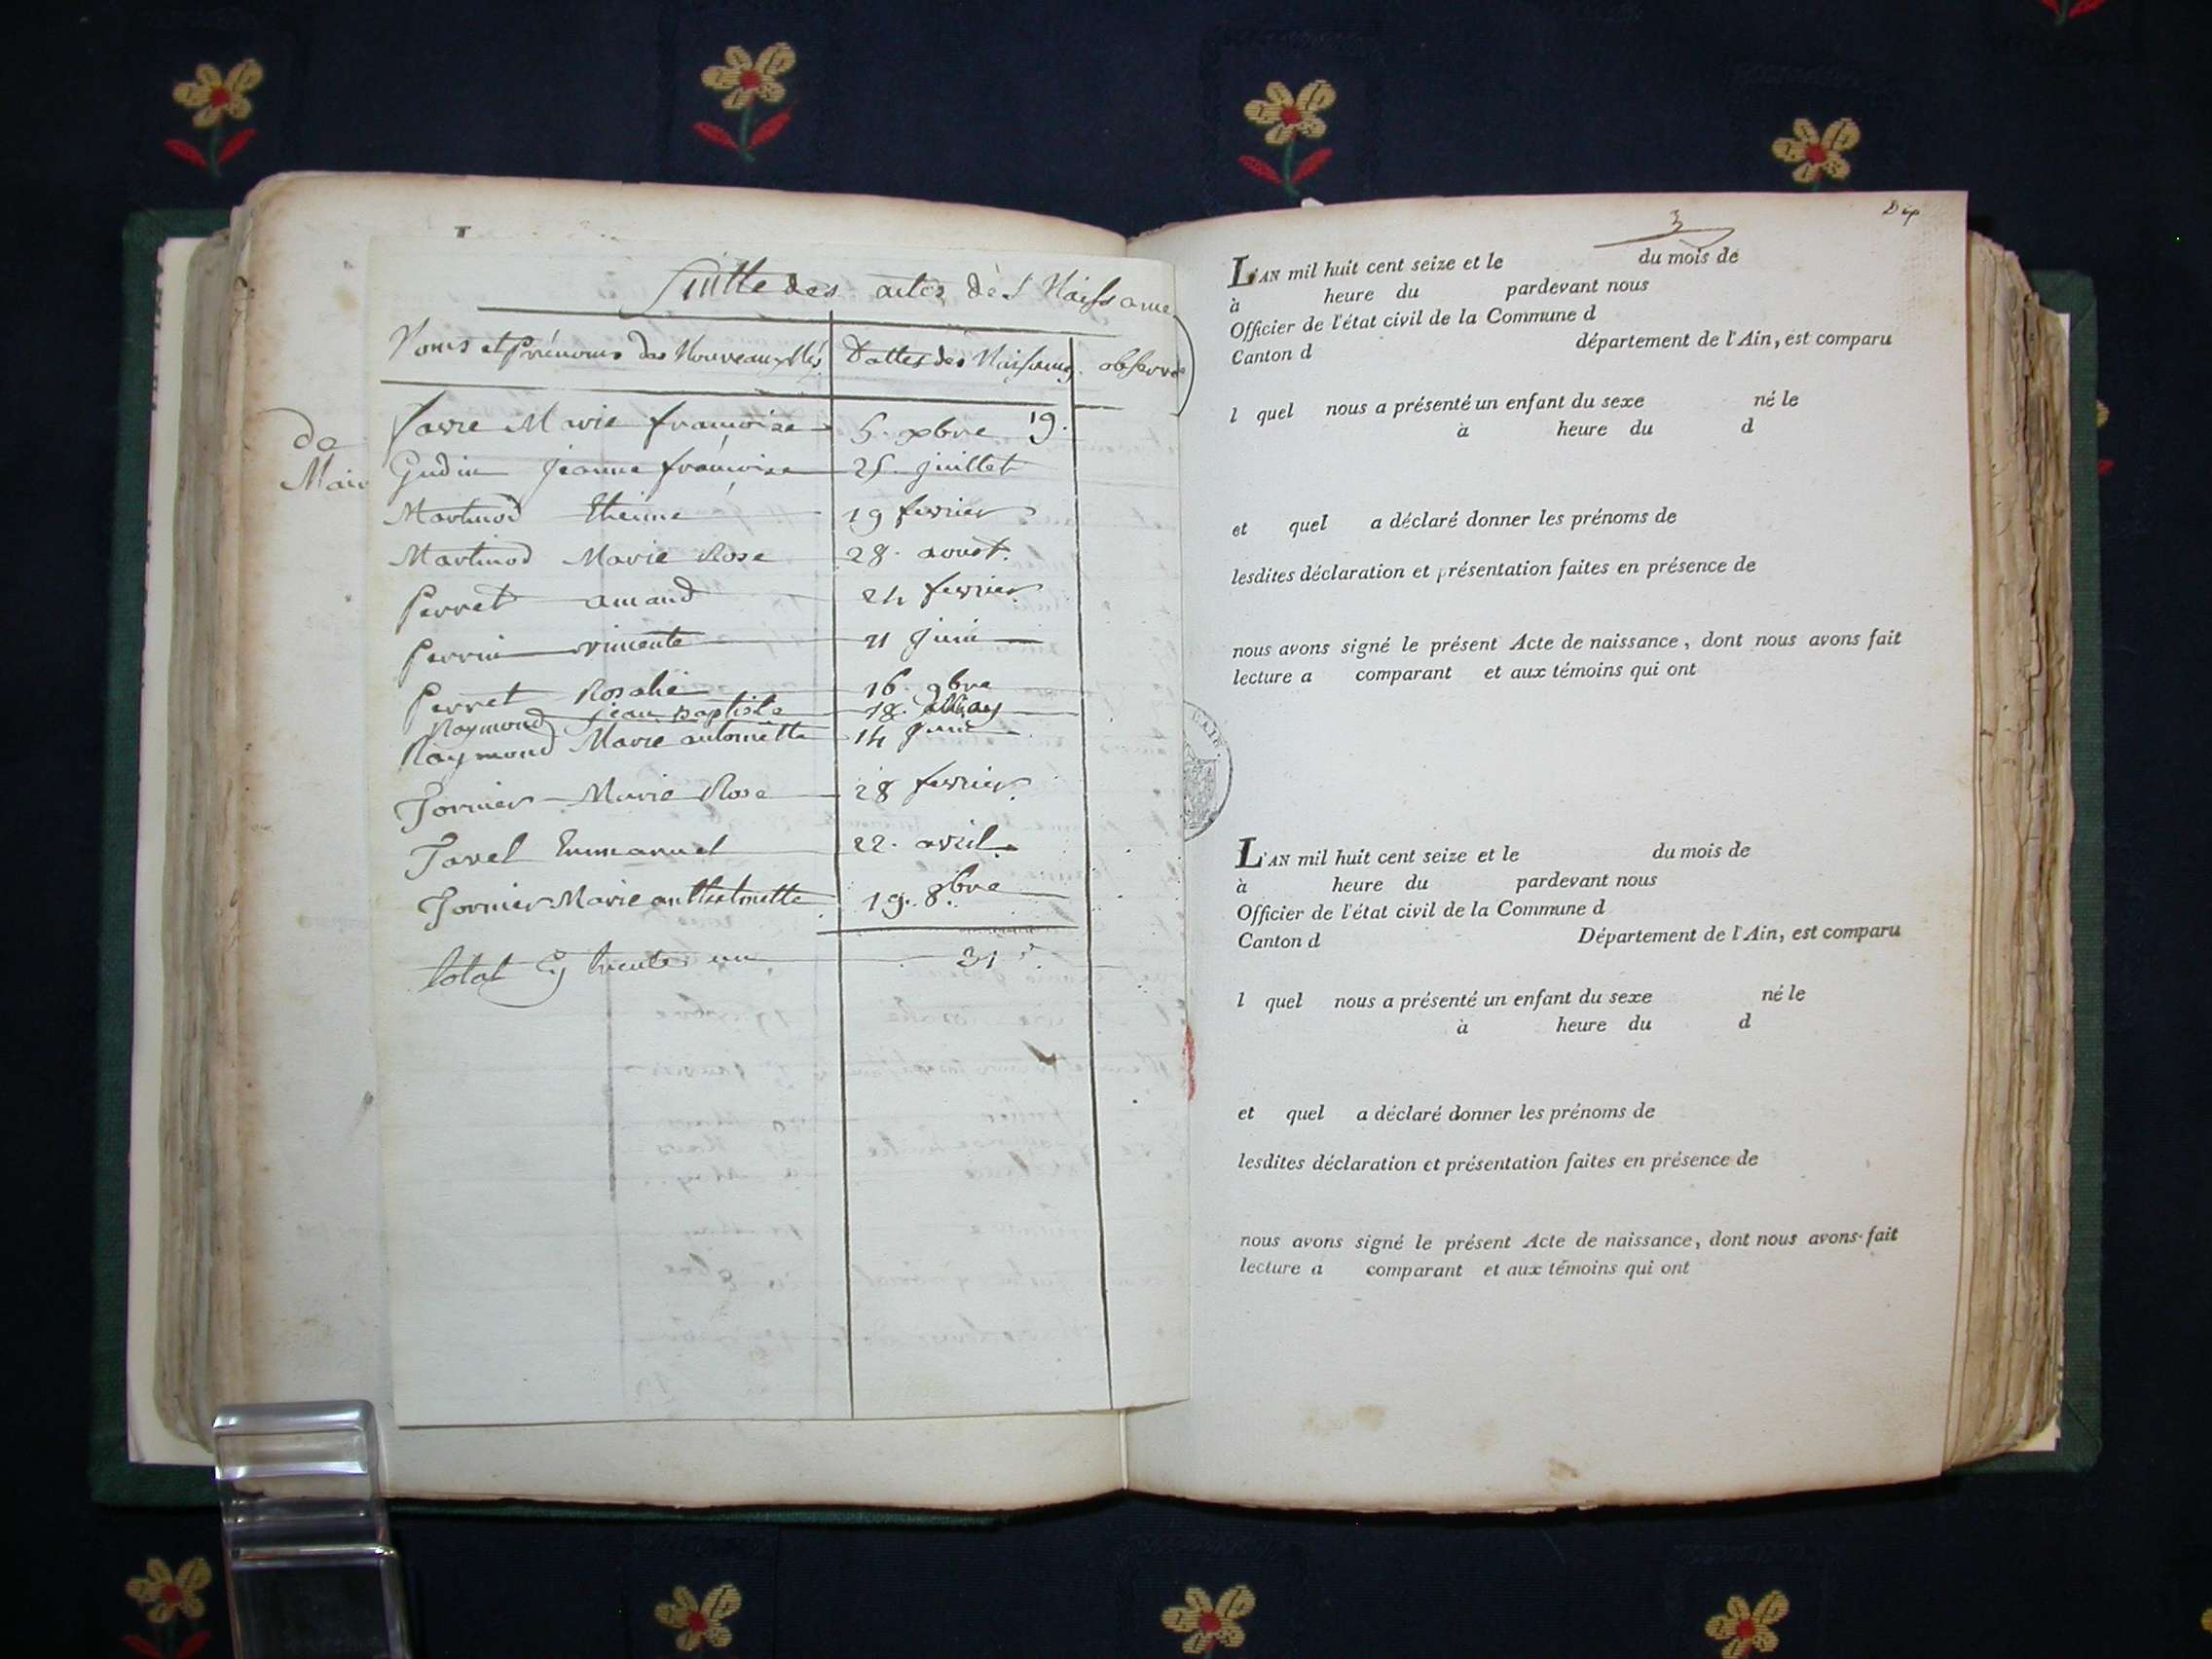 Suitte des actes dès Naissance
Noms et Prénoms des Nouveaux Nés Dattes des Naissances observ
de
Mair
favre Marie françoise 5. xbre 19.
Gudin jeanne françoise 25. juillet
Martinod Etienne 19 fevrier
Martinod Marie Rose 28. aoust.
Perret amand 24 fevrier
Perrin vincente 21 juin
Perret Rosalie 16. 9bre
Raymond jean baptiste 18. May
Raymond Marie antoinette 14 juin
Tornier Marie Rose 28 fevrier
Tavel Emmanuel 22. avril
Tornier Marie anthelmette 19. 8bre
total Cy trente un 31
3
L'AN mil huit cent seize et le du mois de
à heure du pardevant nous
Officier de l'état civil de la Commune d
Canton d département de l'Ain, est comparu
l quel nous a présenté un enfant du sexe né le
à heure du d
et quel a déclaré donner les prénoms de
lesdites déclaration et présentation faites en présence de
nous avons signé le présent Acte de naissance, dont nous avons fait
lecture a comparant et aux témoins qui ont
L'AN mil huit cent seize et le du mois de
à heure du pardevant nous
Officier de l'état civil de la Commune d
Canton d Département de l'Ain, est comparu
l quel nous a présenté un enfant du sexe né le
à heure du d
et quel a déclaré donner les prénoms de
lesdites déclaration et présentation faites en présence de
nous avons signé le présent Acte de naissance, dont nous avons fait
lecture a comparant et aux témoins qui ont